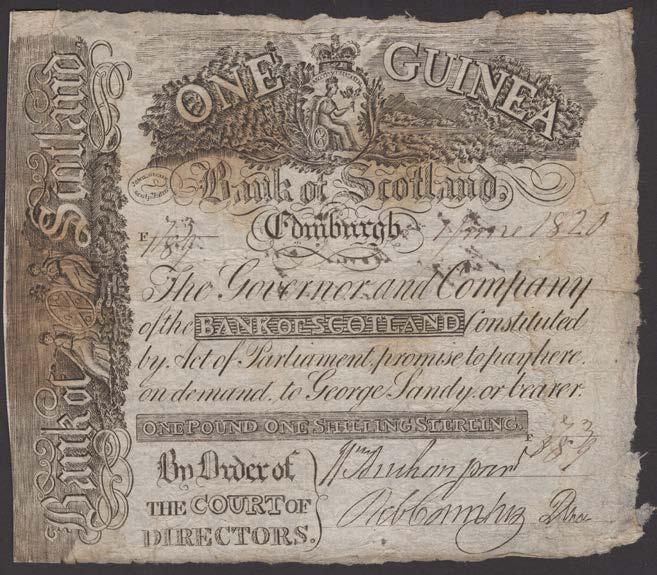 ONE GUINEA
Bank of Scotland
Bank of Scotland.
Edinburgh 1 June 1820
F
The Governor and Company
of the BANK OF SCOTLAND Constituted
by Act of Parliament, promise to pay here,
on demand, to George Sandy, or bearer.
ONE POUND ONE SHILLING STERLING.
F
By Order of
THE COURT OF
DIRECTORS.